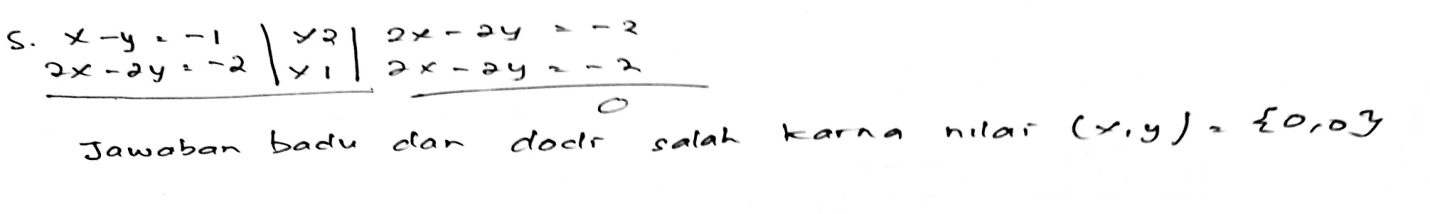 5. x - y = -1 | x2 | 2x - 2y = -2
2x - 2y = -2 | x1 | 2x - 2y = -2
0
Jawaban badu dan dodi salah karna nilai (x,y) = {0,0}